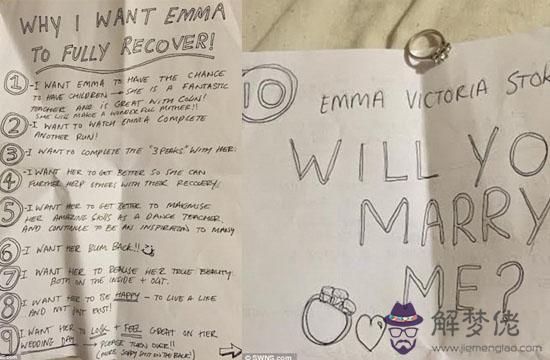 WHY I WANT EMMA
TO FULLY RECOVER!
1 - I WANT EMMA TO HAVE THE CHANCE
TO HAVE CHILDREN → SHE IS A FANTASTIC
TEACHER AND IS GREAT WITH COLIN!
SHE WILL MAKE A WONDERFUL MOTHER!!
2 - I WANT TO WATCH EMMA COMPLETE
ANOTHER RUN!
3 - I WANT TO COMPLETE THE "3 PEAKS" WITH HER.
4 - I WANT HER TO GET BETTER SO SHE CAN
FURTHER HELP OTHERS WITH THEIR RECOVERY.
5 - I WANT HER TO GET BETTER TO MAXIMISE
HER AMAZING SKILLS AS A DANCE TEACHER
AND CONTINUE TO BE AN INSPIRATION TO MANY
6 - I WANT HER BUM BACK!!
7 - I WANT HER TO REALISE HER TRUE BEAUTY.
BOTH ON THE INSIDE + OUT.
8 - I WANT HER TO BE HAPPY - TO LIVE A LIFE
AND NOT JUST EXIST!
9 - I WANT HER TO LOOK + FEEL GREAT ON HER
WEDDING DAY → PLEASE TURN OVER!!
(MORE SOPPY SHIT ON THE BACK)
© SWNS.com
10
EMMA VICTORIA STOK
WILL YO
MARRY
ME?
解梦佬
www.jiemenglao.com